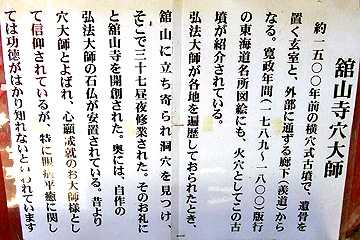 舘山寺穴大師
約一五〇〇年前の横穴式古墳で、遺骨を
置く玄室と、外部に通ずる廊下(羨道)から
なる。寛政年間(一七八九〜一八〇〇)版行
の東海道名所図絵にも、火穴としてこの古
墳が紹介されている。
弘法大師が各地を遍歴しておられたとき
舘山に立ち寄られ洞穴を見つけ
そこで三十七昼夜修業された。そのお礼に
と舘山寺を開創された。奥には、自作の
弘法大師の石仏が安置されている。昔より
穴大師とよばれ、心願成就のお大師様とし
て信仰されているが、特に眼病平癒に関し
ては功徳がはかり知れないといわれています